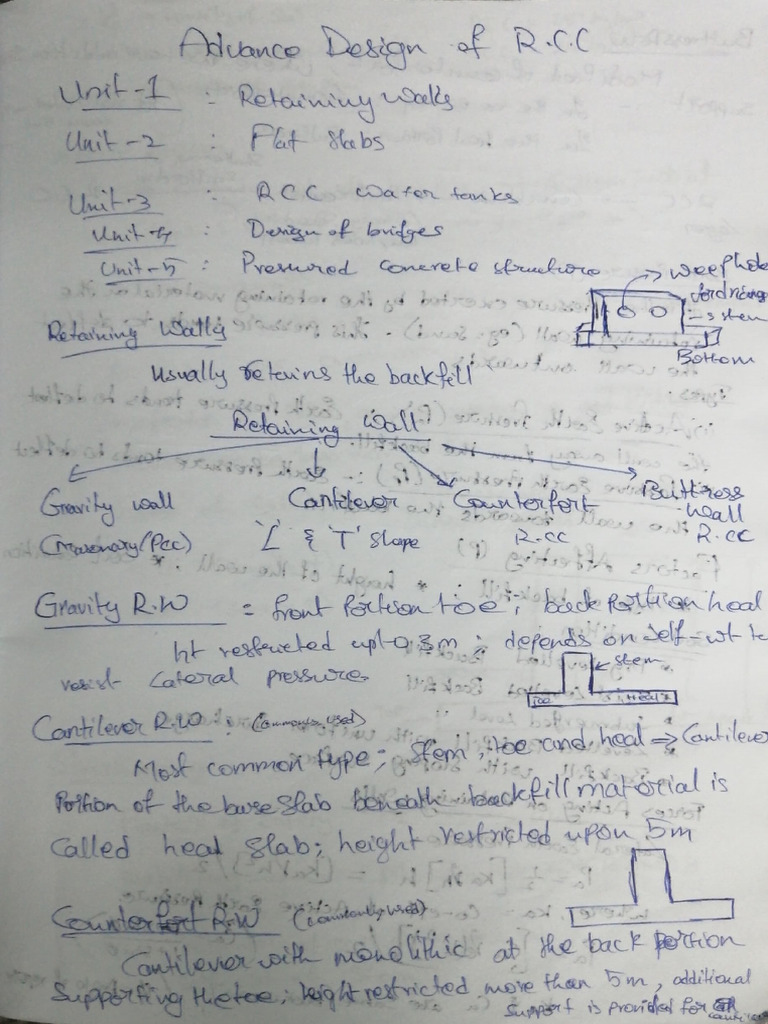 Advance Design of R.C.C
Unit-1 : Retaining walls
Unit-2 : Flat slabs
Unit-3 : RCC water tanks
Unit-4 : Design of bridges
Unit-5 : Pressured concrete structure
weephole
for drainage
stem
Bottom
Retaining Walls
Usually retains the backfill
Retaining Wall
Gravity wall Cantilever Counterfort Buttress wall
(Masonary/PCC) 'L' & 'T' Shape R.CC R.CC
Gravity R.W = front Portion toe; back portion heal
ht restricted upto 3m; depends on self-wt to
resist Lateral pressure
stem
toe heal
Cantilever R.W : (commonly used)
Most common type; Stem, toe and heal ⇒ Cantilever
Portion of the base slab beneath backfill material is
Called heal slab; height restricted upon 5m
Counterfort R.W (commonly used)
Cantilever with monolithic at the back portion
Supporting the toe; height restricted more than 5m, additional
support is provided for